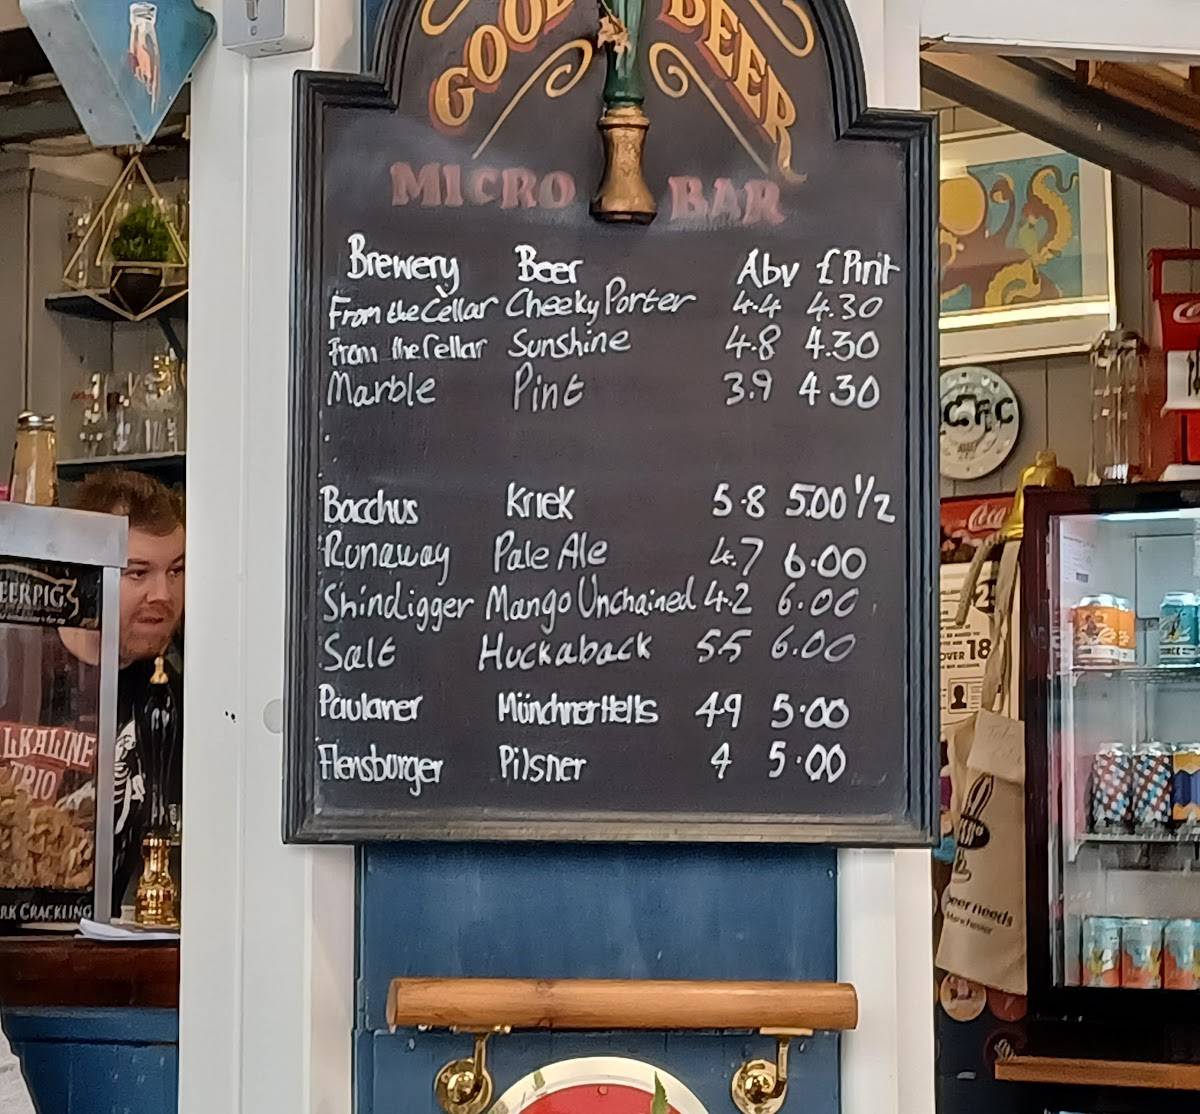 GOOD BEER
MICRO BAR
Brewery Beer Abv £ Pint
From the Cellar Cheeky Porter 4.4 4.30
From the Cellar Sunshine 4.8 4.30
Marble Pint 3.9 4 30
Bacchus Kriek 5.8 5.00 1/2
Runaway Pale Ale 4.7 6.00
Shindigger Mango Unchained 4.2 6.00
Salt Huckaback 55 6.00
Paulaner Münchner Hells 49 5.00
Flensburger Pilsner 4 5.00
EERPIGS
LKALINE
TRIO
RK CRACKLING
Coca
OVER 18
beer needs
Manchester